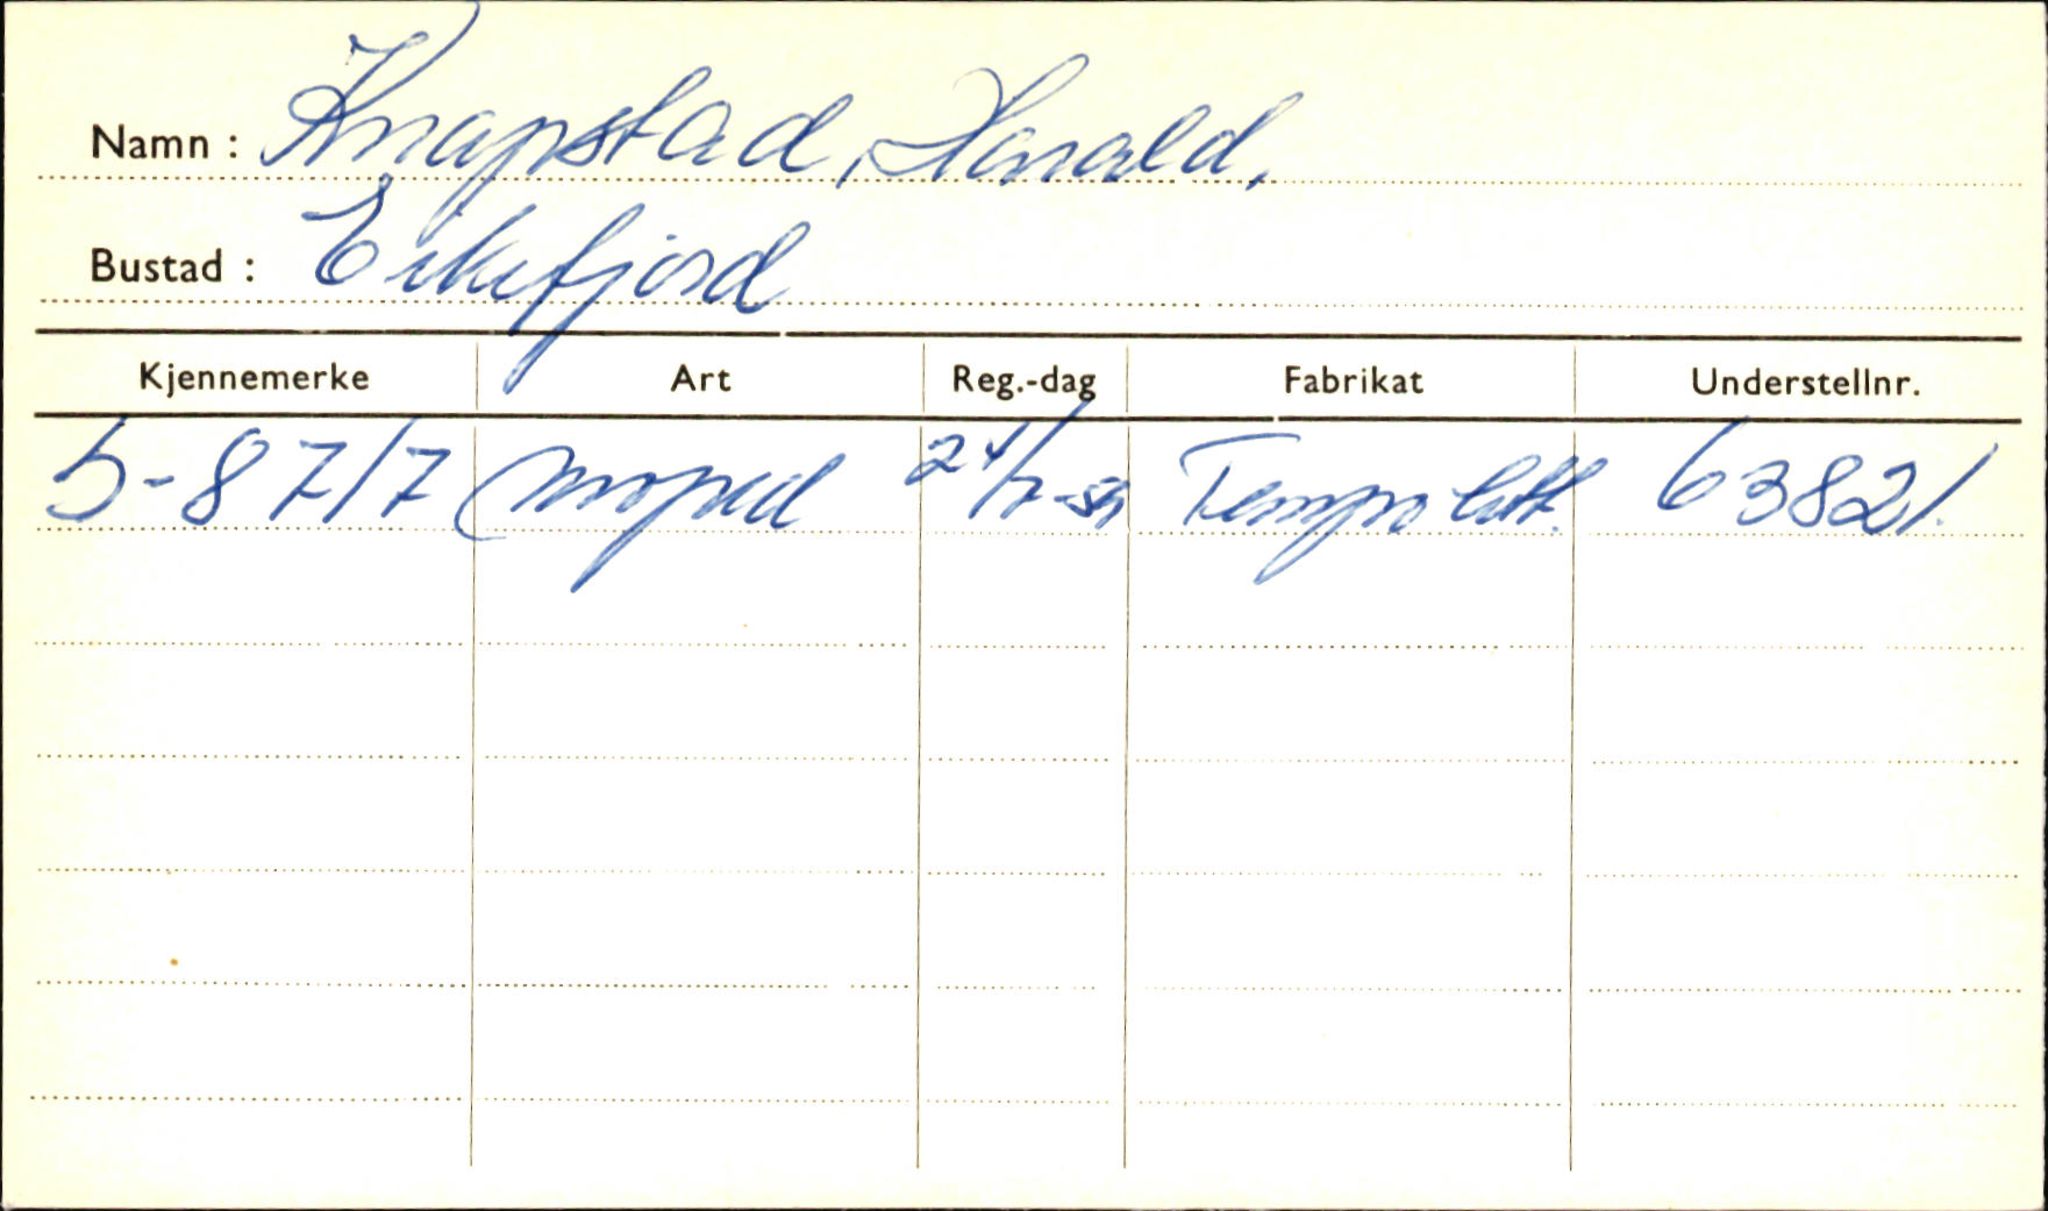 Namn : Knapstad, Harald,
Bustad : Eikefjord
Kjennemerke Art Reg.-dag Fabrikat Understellnr.
S-8717 moped 24/7-59 Tempo lett. 63821.